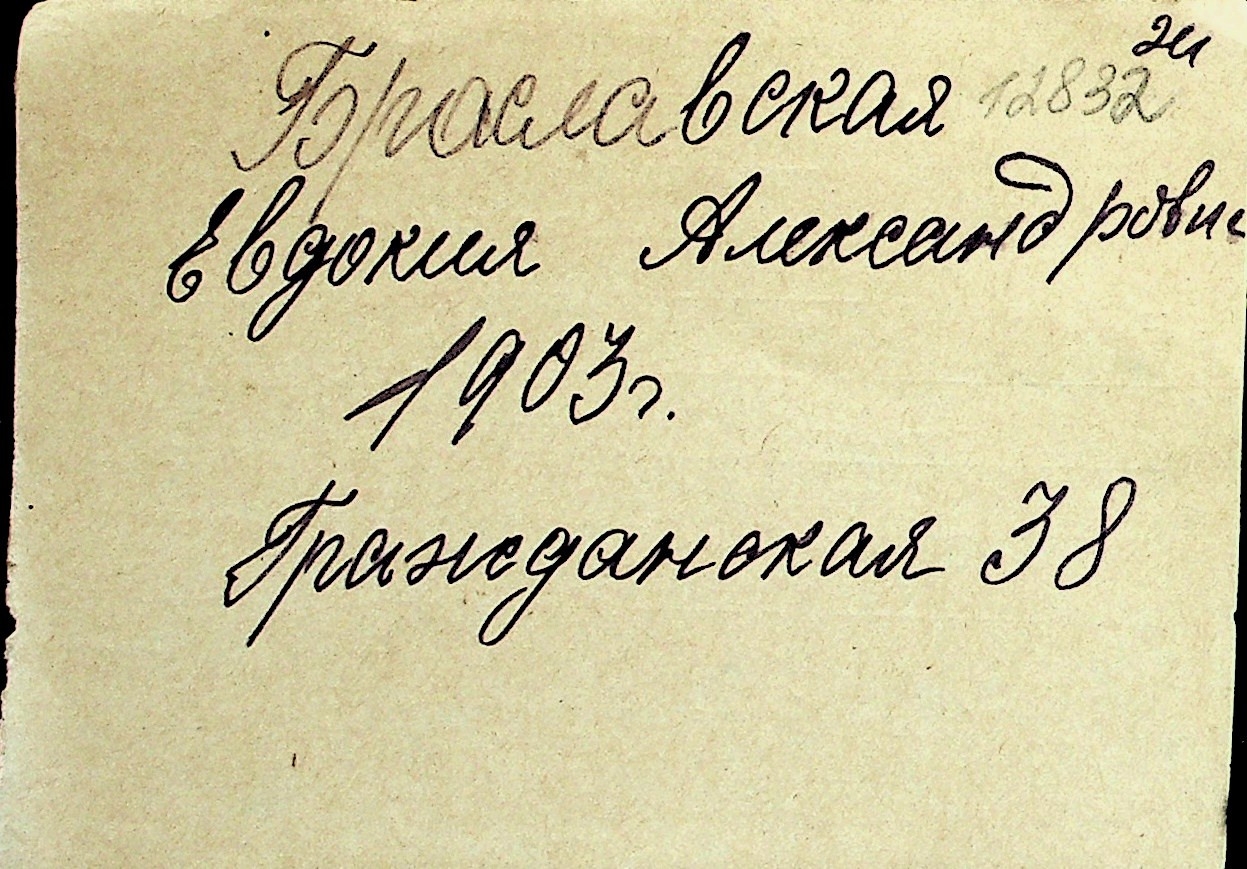 Браславская 12832
Евдокия Александрови
1903г.
Гражданская 38